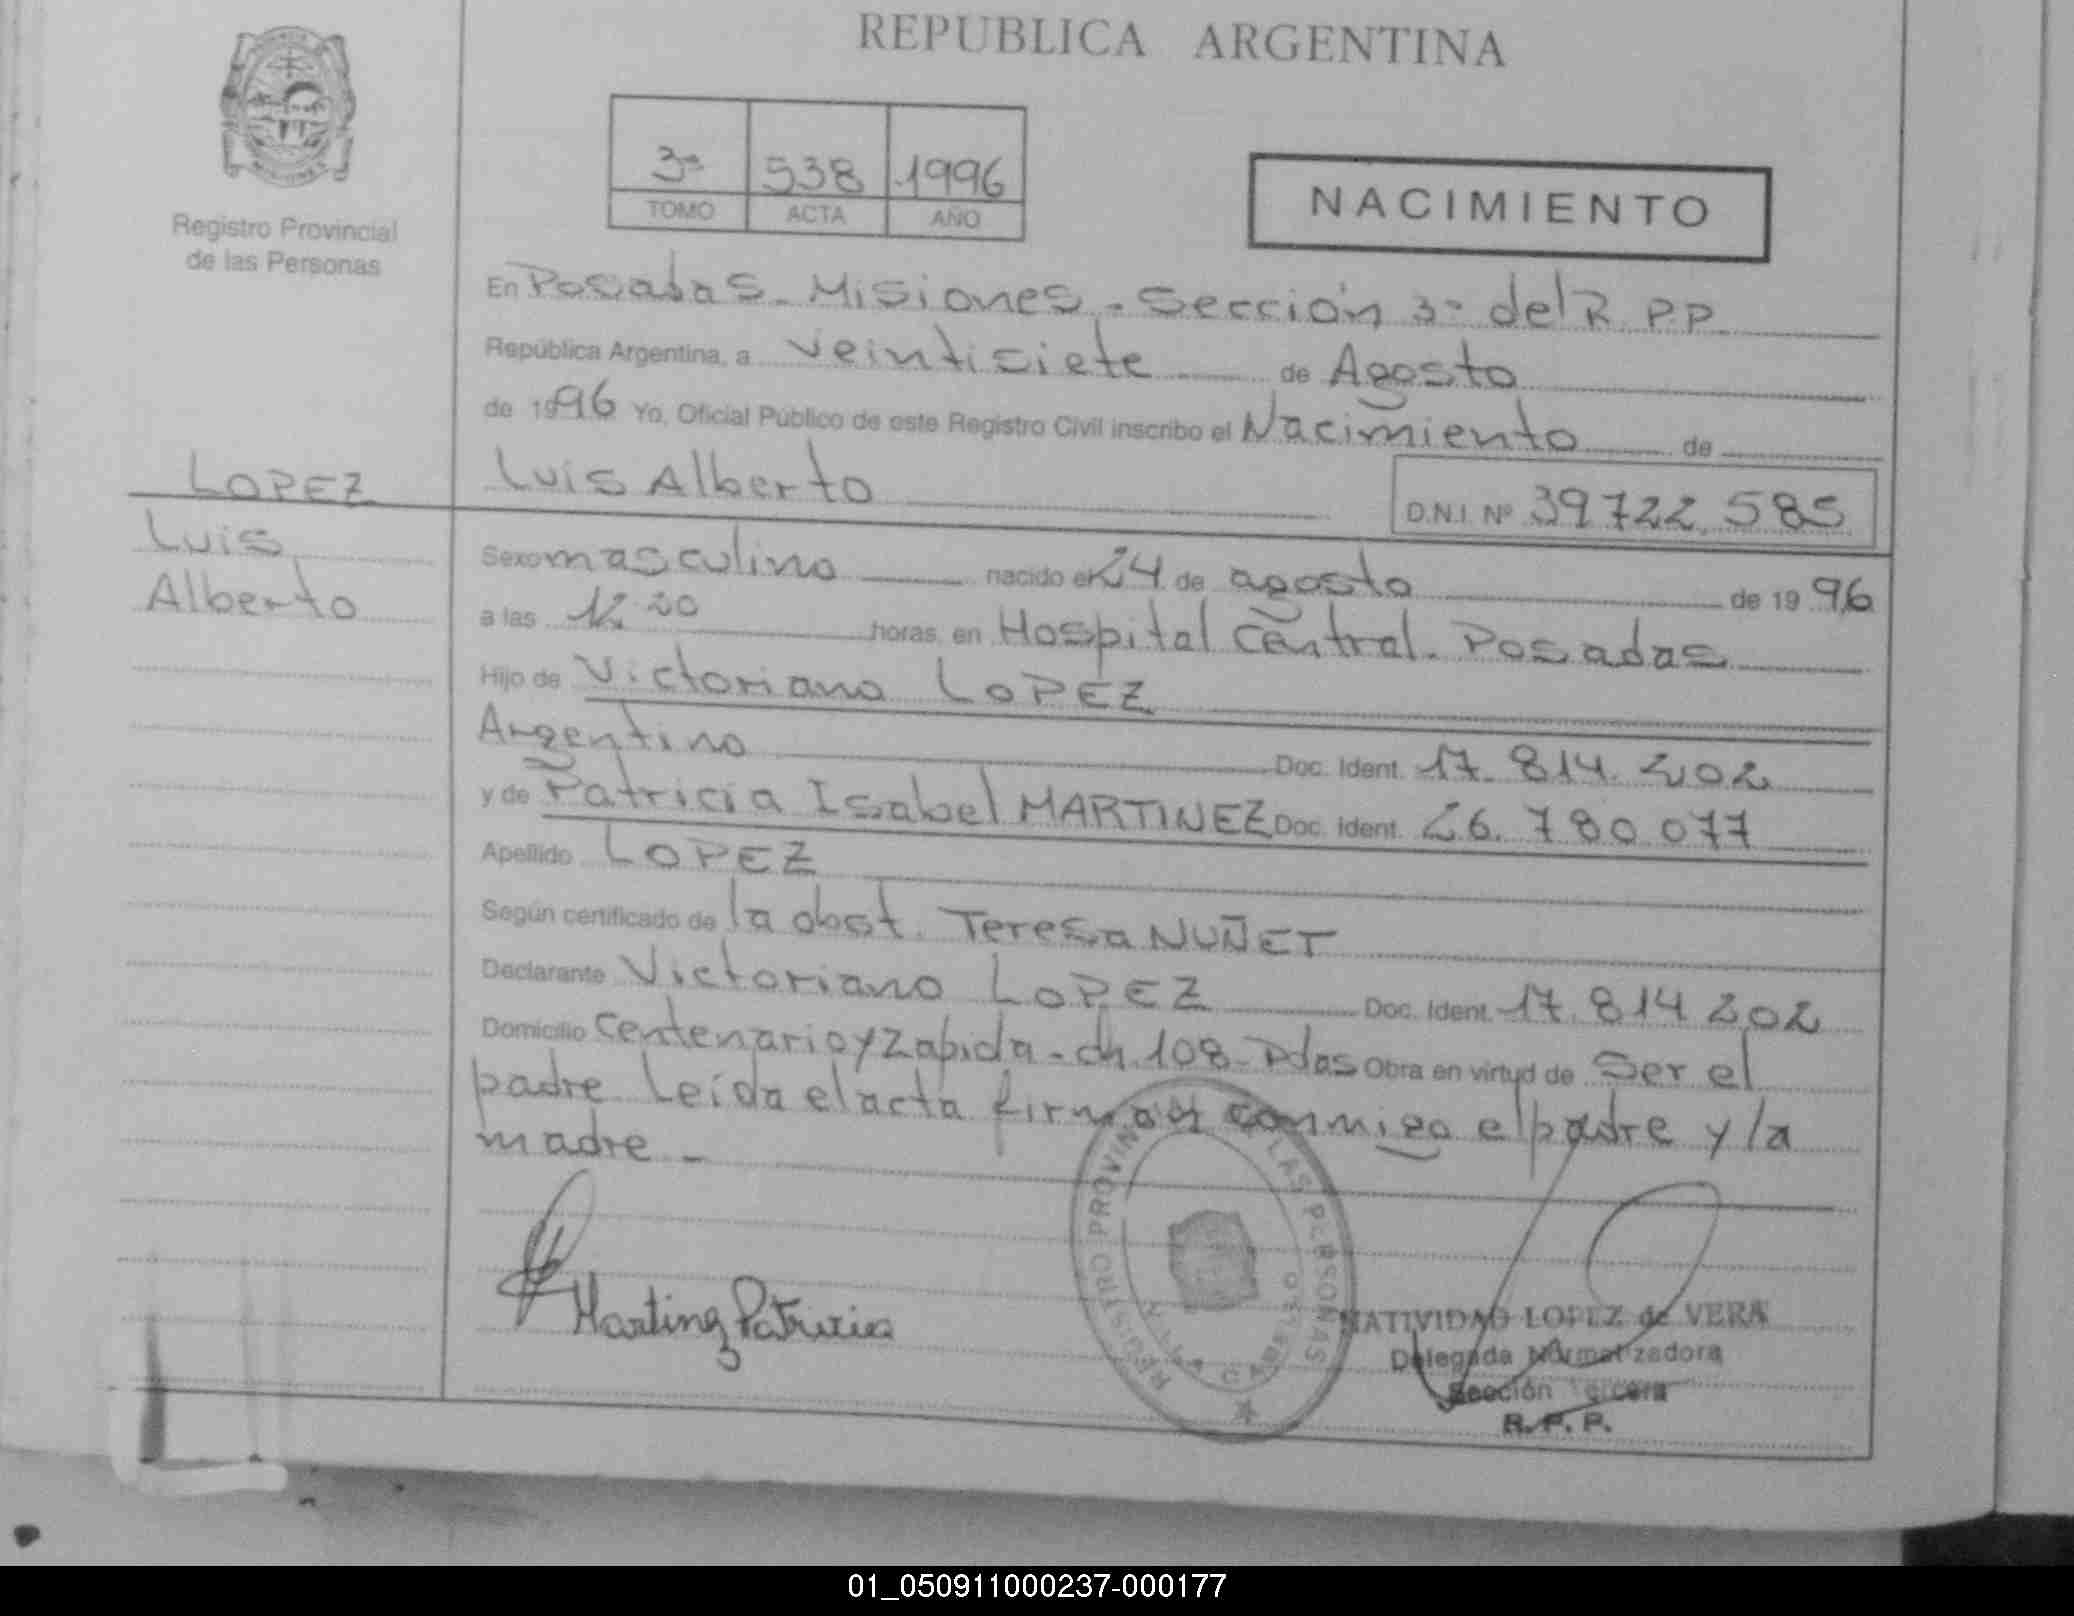 REPUBLICA ARGENTINA
Registro Provincial
de las Personas
3ª 538 1996
TOMO ACTA AÑO
NACIMIENTO
En Posadas - Misiones - Sección 3ª del R.P.P.
República Argentina, a veintisiete de Agosto
de 1996 Yo, Oficial Público de este Registro Civil inscribo el Nacimiento de
LOPEZ
Luis
Alberto
Luis Alberto D.N.I. Nº 39722.585
Sexo masculino nacido el 24 de agosto de 1996
a las 12 20 horas, en Hospital Central. Posadas
Hijo de Victoriano LOPEZ
Argentino Doc. Ident. 17.814.202
y de Patricia Isabel MARTINEZ Doc. Ident. 26.780.077
Apellido LOPEZ
Según certificado de la obst. Teresa NUÑET
Declarante Victoriano LOPEZ Doc. Ident. 17.814.202
Domicilio Centenario y Zapiola - ch. 108 - Pdas Obra en virtud de Ser el
padre Leída el acta firman conmigo el padre y la
madre -
Martinez Patricia
REGISTRO PROVINCIAL LAS PERSONAS
NATIVIDAD LOPEZ de VERA
Delegada Normatizadora
Sección Tercera
R. P. P.
01_050911000237-000177